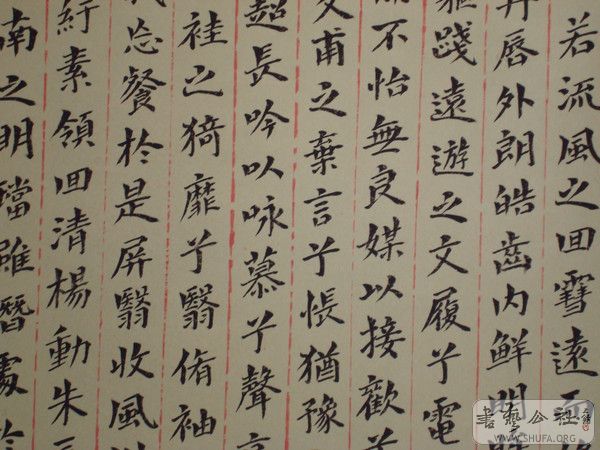 若流風之囬雪遠而
丹唇外朗皓齒内鮮明眸
踐遠遊之文履兮電
不怡無良媒以接歡兮
甫之棄言兮悵猶豫
超長吟以咏慕兮聲
袿之猗靡兮翳脩袖
忘餐於是屏翳收風
紆素領囬清楊動朱
南之明璫雖潛處於
書藝公社
WWW.SHUFA.ORG